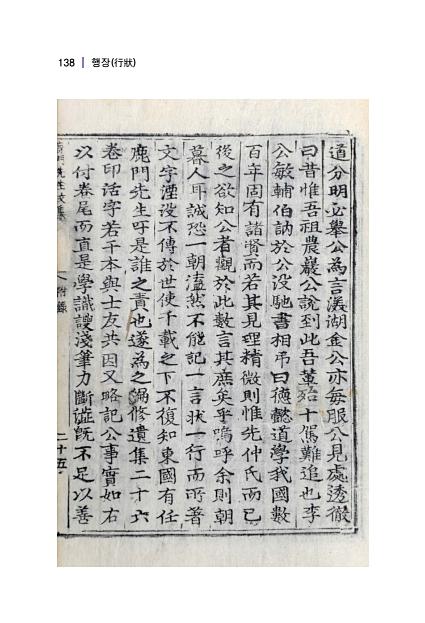 138 | 행장(行狀)
道分明必擧公爲言渼湖金公亦每服公見處透徹
曰昔惟吾祖農巖公說到此吾輩殆十駕難追也李
公敏輔伯訥於公沒馳書相弔曰德懿道學我國數
百年固有諸賢而若其見理精微則惟先仲氏而已
後之欲知公者觀於此數言其庶矣乎嗚呼余則朝
暮人耳誠恐一朝溘然不能記一言狀一行而所著
文字湮沒不傳於世使千載之下不復知東國有任
鹿門先生吁是誰之責也遂爲之編修遺集二十六
卷印活字若干本與士友共因又略記公事實如右
以付卷尾而直是學識謏淺筆力斷澁旣不足以善
鹿門先生文集
附錄
二十五